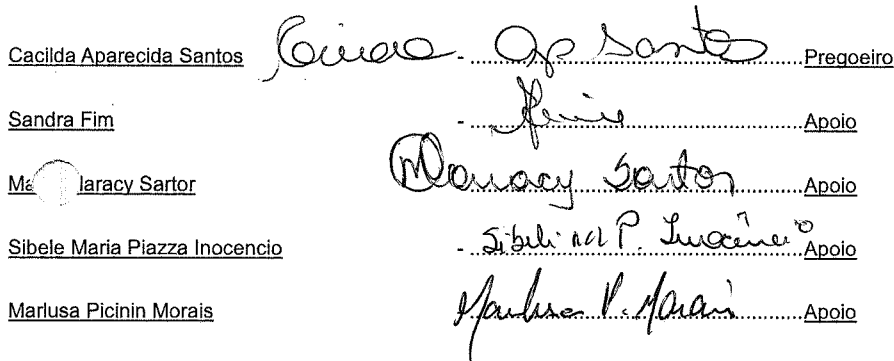 Cacilda Aparecida Santos - Ap Santos Pregoeiro
Sandra Fim - Apoio
Ma laracy Sartor Maracy Sartor Apoio
Sibele Maria Piazza Inocencio - Sibeli P. Inocêncio Apoio
Marlusa Picinin Morais Marlusa P. Morais Apoio